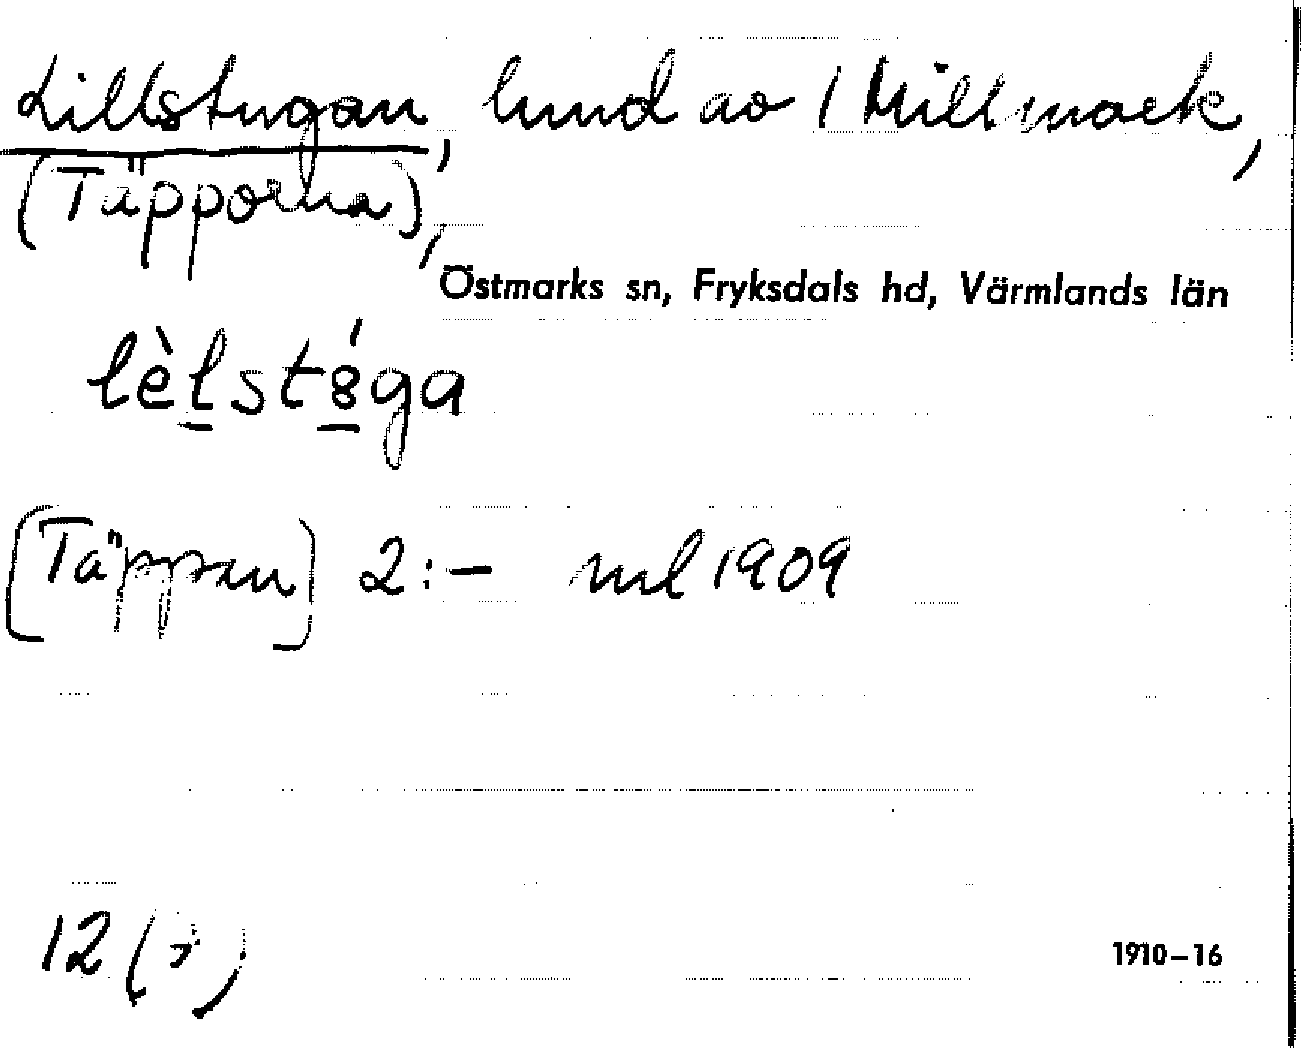 Lillstugan, lund av 1 Millmark,
(Täpporna),
Östmarks sn, Fryksdals hd, Värmlands län
lèlstóga
[Täppan] 2:- ml 1909
12
1910-16